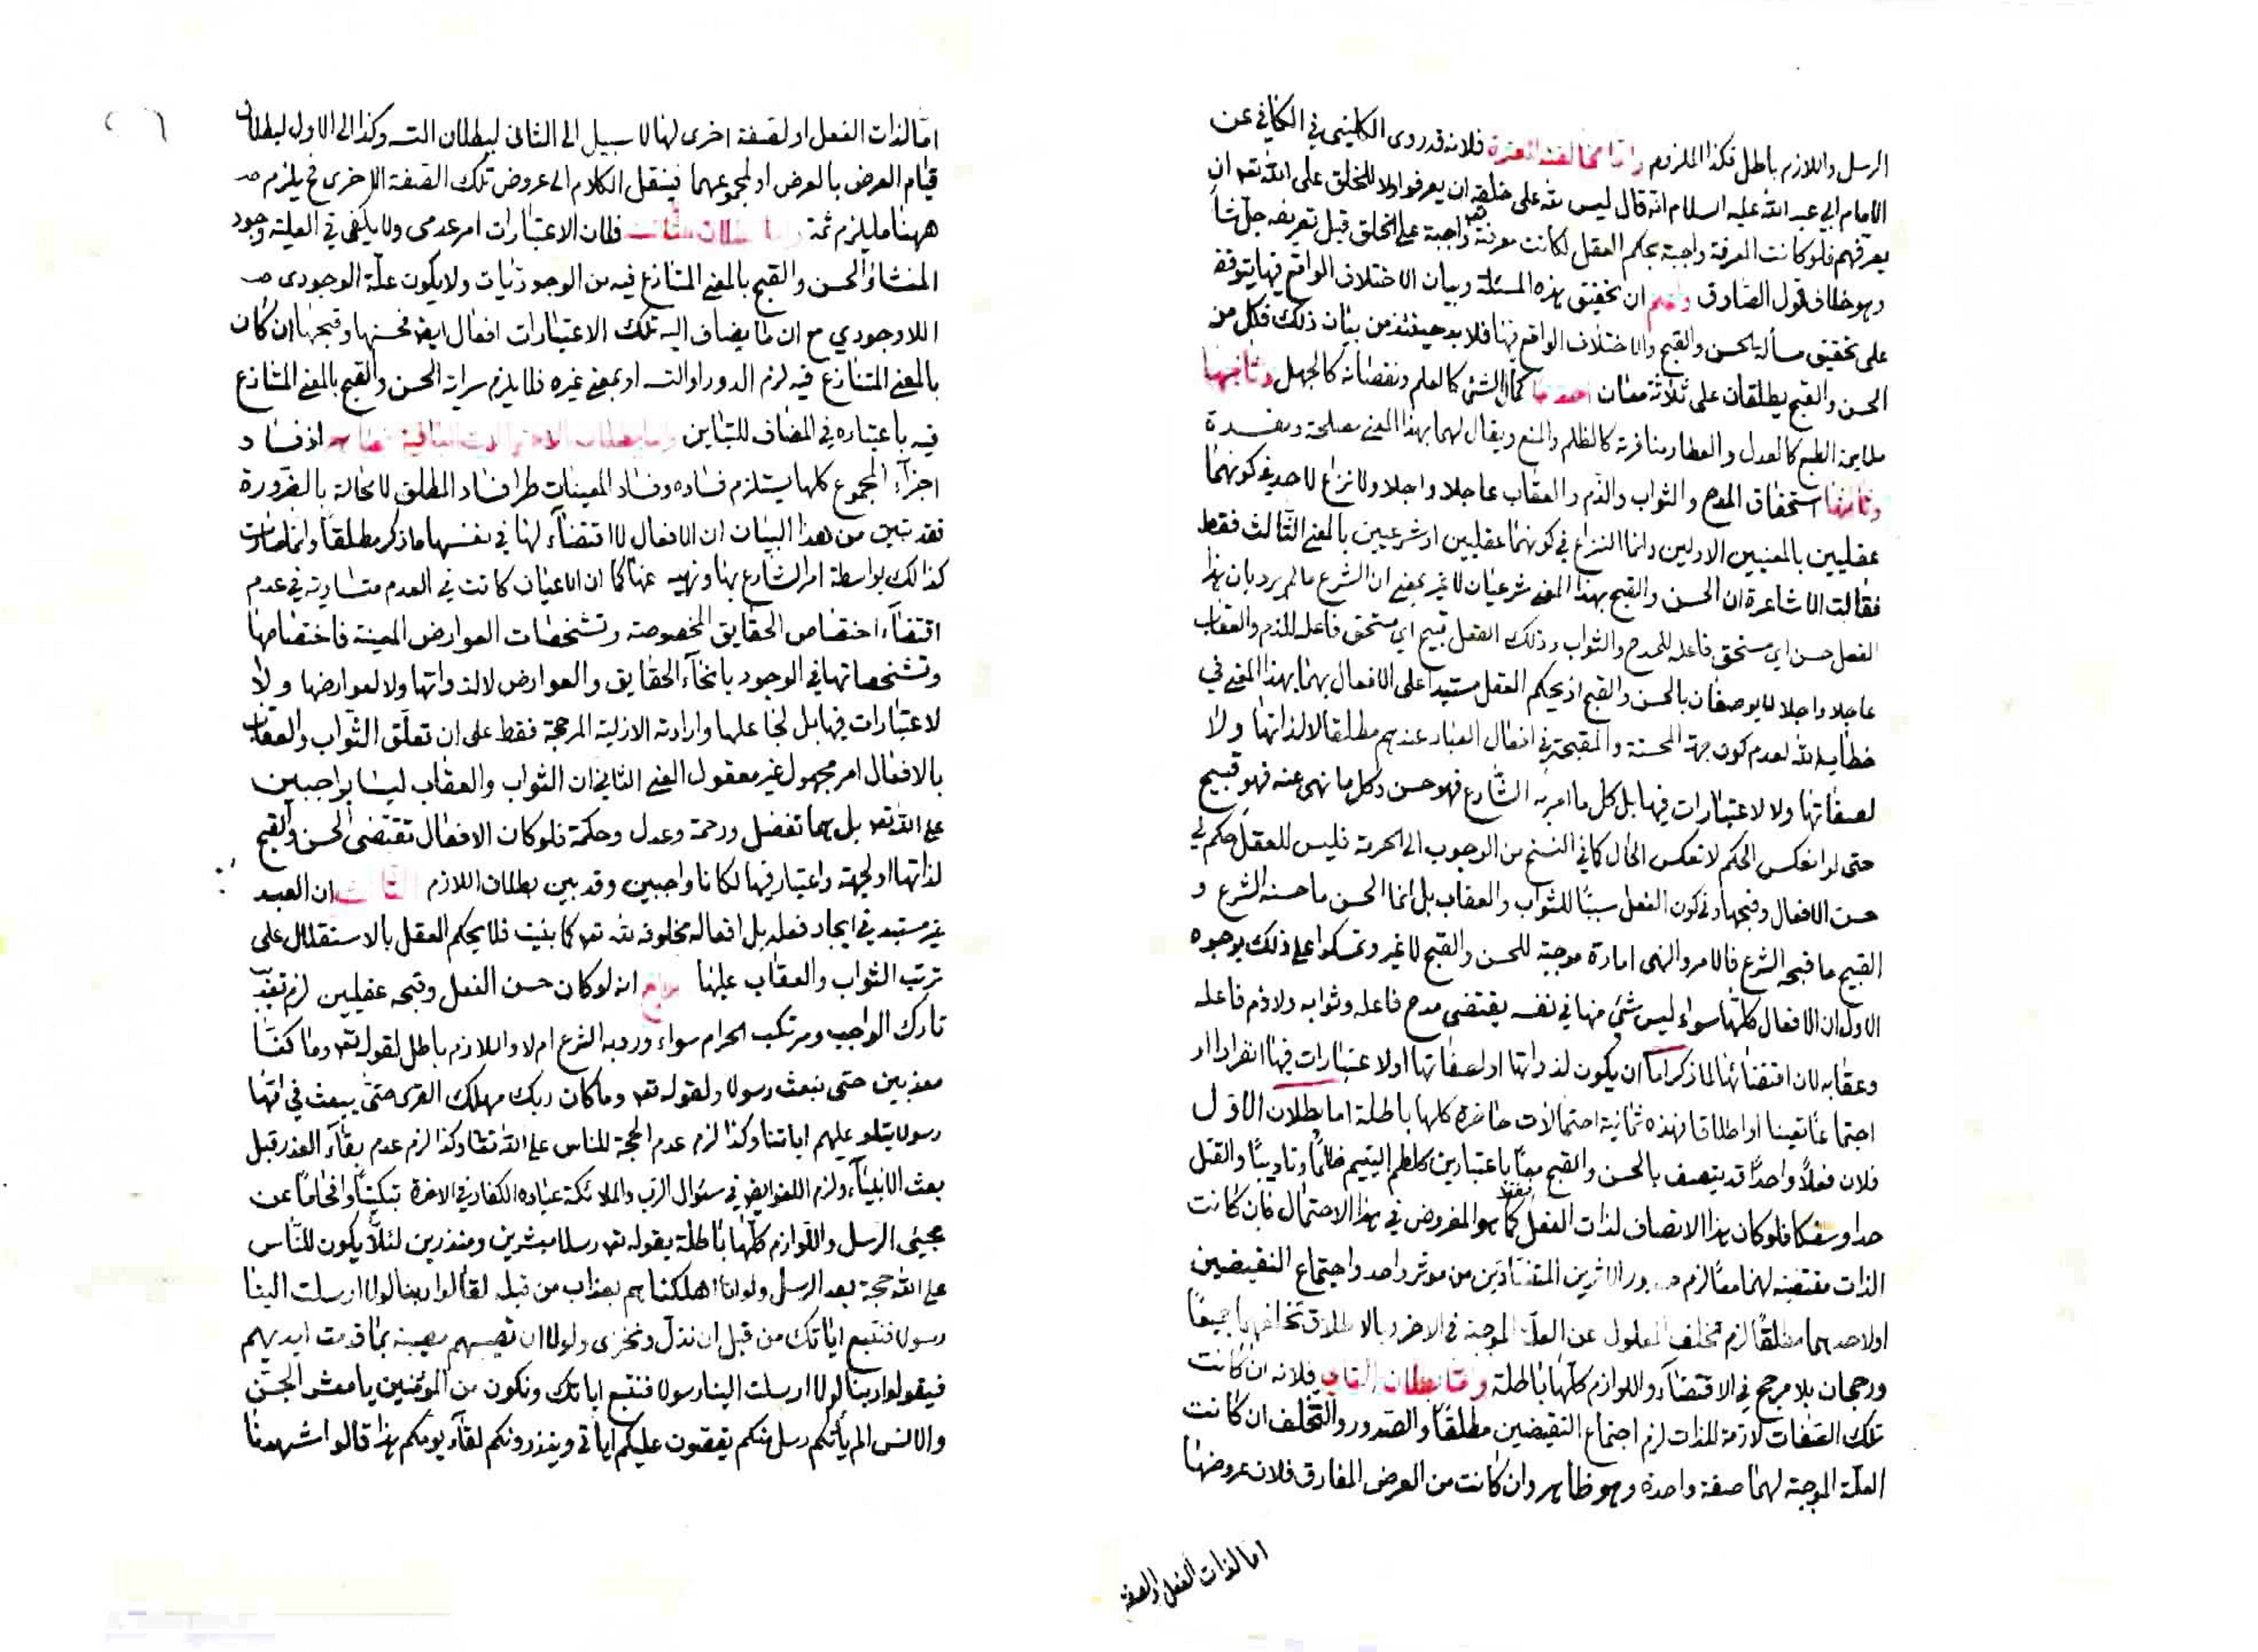 الرسل واللازم باطل فكذا الملزوم واما مخالفته للعترة فلانه قدروى الكليني في الكافي عن
الامام ابي عبد الله عليه السلام انه قال ليس لله على خلقه ان يعرفوا ولا للخلق على الله تعه ان
يعرفهم فلو كانت المعرفة واجبة بحكم العقل لكانت معرفته واجبة على الخلق قبل تعريفه جل شأ
وهو خلاف قول الصادق واعلم ان تحقيق هذه المسئلة وبيان الاختلاف الواقع فيها يتوقف
على تحقيق مسألة الحسن والقبح والاختلاف الواقع فيها فلا بد حينئذ من بيان ذلك فكل من
الحسن والقبح يطلقان على ثلاثة معان احدها كمال الشئ كالعلم ونقصانه كالجهل وثانيها
ملايمة الطبع كالعدل والعطا ومنافرته كالظلم والمنع ويقال لهما بهذا المعنى مصلحة ومفسدة
وثالثها استحقاق المدح والثواب والذم والعقاب عاجلا واجلا ولا نزاع لاحد في كونهما
عقليين بالمعنيين الاولين وانما النزاع في كونهما عقليين او شرعيين بالمعنى الثالث فقط
فقالت الاشاعرة ان الحسن والقبح بهذا المعنى شرعيان لا غير بمعنى ان الشرع ما لم يرد بان هذا
الفعل حسن اي مستحق فاعله للمدح والثواب وذلك الفعل قبيح اي مستحق فاعله للذم والعقاب
عاجلا واجلا لا يوصفان بالحسن والقبح اذ يحكم العقل مستبدا على الافعال بهما بهذا المعنى في
خطاب الله لعدم كون جهة المحسنة والمقبحة في افعال العباد عندهم مطلقا لا لذاتها ولا
لصفاتها ولا لاعتبارات فيها بل كل ما امر به الشارع فهو حسن وكل ما نهى عنه فهو قبيح
حتى لو انعكس الحكم لانعكس الحال كما في النسخ من الوجوب الى الحرمة فليس للعقل حكم في
حسن الافعال وقبحها وفي كون الفعل سببا للثواب والعقاب بل انما الحسن ما حسنه الشرع و
القبيح ما قبحه الشرع فالامر والنهى امارة موجبة للحسن والقبح لا غير وتمسكوا على ذلك بوجوه
الاول ان الافعال كلها سواء ليس شئ منها في نفسه يقتضى مدح فاعله وثوابه ولا ذم فاعله
وعقابه لان اقتضائها لما ذكر اما ان يكون لذواتها او لصفاتها او لاعتبارات فيها انفرادا او
اجتماعا تعينا او اطلاقا فهذه ثمانية احتمالات حاضرة كلها باطلة اما بطلان الاول
فلان فعلا واحدا قد يتصف بالحسن والقبح معا باعتبارين كلطم اليتيم ظلما وتاديبا والقتل
حدا وسفكا فلو كان هذا الاتصاف لذات الفعل فقط كما هو المفروض في هذا الاحتمال فان كانت
الذات مقتضية لهما معا لزم صدور الاثرين المتضادين من موثر واحد واجتماع النقيضين
او لاحدهما مطلقا لزم تخلف المعلول عن العلة الموجبة في الاخر وبالاطلاق تخلفهما جميعا
ورجحان بلا مرجح في الاقتضاء واللوازم كلها باطلة واما بطلان الثانى فلانه ان كانت
تلك الصفات لازمة للذات لزم اجتماع النقيضين مطلقا والصدور والتخلف ان كانت
العلة الموجبة لهما صفة واحدة وهو ظاهر وان كانت من العرض المفارق فلان عروضها
اما لذات الفعل او لصفة
اما لذات الفعل او لصفة اخرى لها لا سبيل الى الثانى لبطلان التسه وكذا الى الاول لبطلان
قيام العرض بالعرض او لمجموعهما فينقل الكلام الى عروض تلك الصفة الاخرى فح يلزم
ههنا ما يلزم ثمة واما بطلان الثالث فلان الاعتبارات امر عدمى ولا يكفى في العلية وجود
المنشا والحسن والقبح بالمعنى المتنازع فيه من الوجوديات ولا يكون علة الوجودى
اللاوجودي مع ان ما يضاف اليه تلك الاعتبارات افعال ايضا فحسنها وقبحها ان كان
بالمعنى المتنازع فيه لزم الدور او التسه او بمعنى غيره فلا يلزم سراية الحسن والقبح بالمعنى المتنازع
فيه باعتباره في المضاف للتباين واما بطلان الاحتمالات الباقية اذ فساد
اجزاء المجموع كلها يستلزم فساده وفساد المعينات طرا فساد المطلق لا محالة بالضرورة
فقد تبين من هذا البيان ان الافعال لا اقتضاء لها في نفسها ما ذكر مطلقا وانما صارت
كذالك بواسطة امر الشارع بها ونهيه عنها كما ان الاعيان كانت في العدم متساوية في عدم
اقتضاء اختصاص الحقايق المخصوصة وتشخصات العوارض المعينة فاختصاصها
وتشخصاتها في الوجود بانحاء الحقايق والعوارض لا لذواتها ولا لعوارضها ولا
لاعتبارات فيها بل لجاعلها وارادته الازلية المرجحة فقط على ان تعلق الثواب والعقاب
بالافعال امر مجهول غير معقول المعنى الثانى ان الثواب والعقاب ليسا بواجبين
على الله تعه بل هما تفضل ورحمة وعدل وحكمة فلو كان الافعال تقتضى الحسن والقبح
لذاتها او لجهة واعتبار فيها لكانا واجبين وقد بين بطلان اللازم الثالث ان العبد
غير مستبد في ايجاد فعله بل افعاله مخلوقة لله تعه كما بينت فلا يحكم العقل بالاستقلال على
ترتب الثواب والعقاب عليها الرابع انه لو كان حسن الفعل وقبحه عقليين لزم تعذيب
تارك الواجب ومرتكب الحرام سواء ورد به الشرع ام لا واللازم باطل لقوله تعه وما كنا
معذبين حتى نبعث رسولا ولقوله تعه وما كان ربك مهلك القرى حتى يبعث في امها
رسولا يتلو عليهم اياتنا وكذا لزم عدم الحجة للناس على الله تعا وكذا لزم عدم بقاء العذر قبل
بعث الانبياء ولزم اللغو ايضا في سئوال الرب والملائكة عباده الكفار في الاخرة تبكيتا وافحاما عن
مجيئى الرسل واللوازم كلها باطلة بقوله تعه رسلا مبشرين ومنذرين لئلا يكون للناس
على الله حجة بعد الرسل ولو انا اهلكناهم بعذاب من قبله لقالوا ربنا لولا ارسلت الينا
رسولا فنتبع اياتك من قبل ان نذل ونخزى ولولا ان تصيبهم مصيبة بما قدمت ايديهم
فيقولوا ربنا لولا ارسلت الينا رسولا فنتبع اياتك ونكون من المؤمنين يا معشر الجن
والانس الم يأتكم رسل منكم يقصون عليكم اياتى وينذرونكم لقاء يومكم هذا قالوا شهدنا